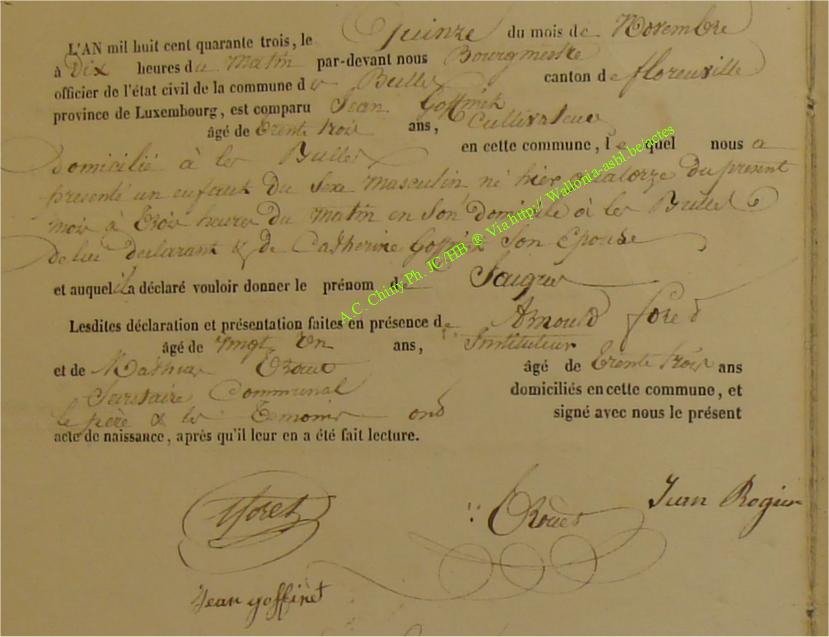 L'AN mil huit cent quarante trois, le Quinze du mois de Novembre
à Dix heures du Matin par-devant nous Bourgmestre
officier de l'état civil de la commune de Bulles canton de florenville
province de Luxembourg, est comparu Jean Goffinet
âgé de trente trois ans, Cultivateur
en cette commune, le quel nous a
Domicilié à les Bulles
présenté un enfant Du Sexe Masculin, né hier quatorze Du présent
mois à trois heures Du Matin en Son Domicile à les Bulles
De lui Déclarant & De Catherine Son Epouse
et auquel il a déclaré vouloir donner le prénom de
Lesdites déclaration et présentation faites en présence de Arnould foret
âgé de vingt un ans, Instituteur
et de Mathias âgé de trente trois ans
Secrétaire Communal domiciliés en cette commune, et
le père & les temoins ont signé avec nous le présent
acte de naissance, après qu'il leur en a été fait lecture.
A.C. Chiny Ph. JC/HB @ Via http:// Wallonia-asbl.be/actes
Jean Rogier
foret
Jean goffinet